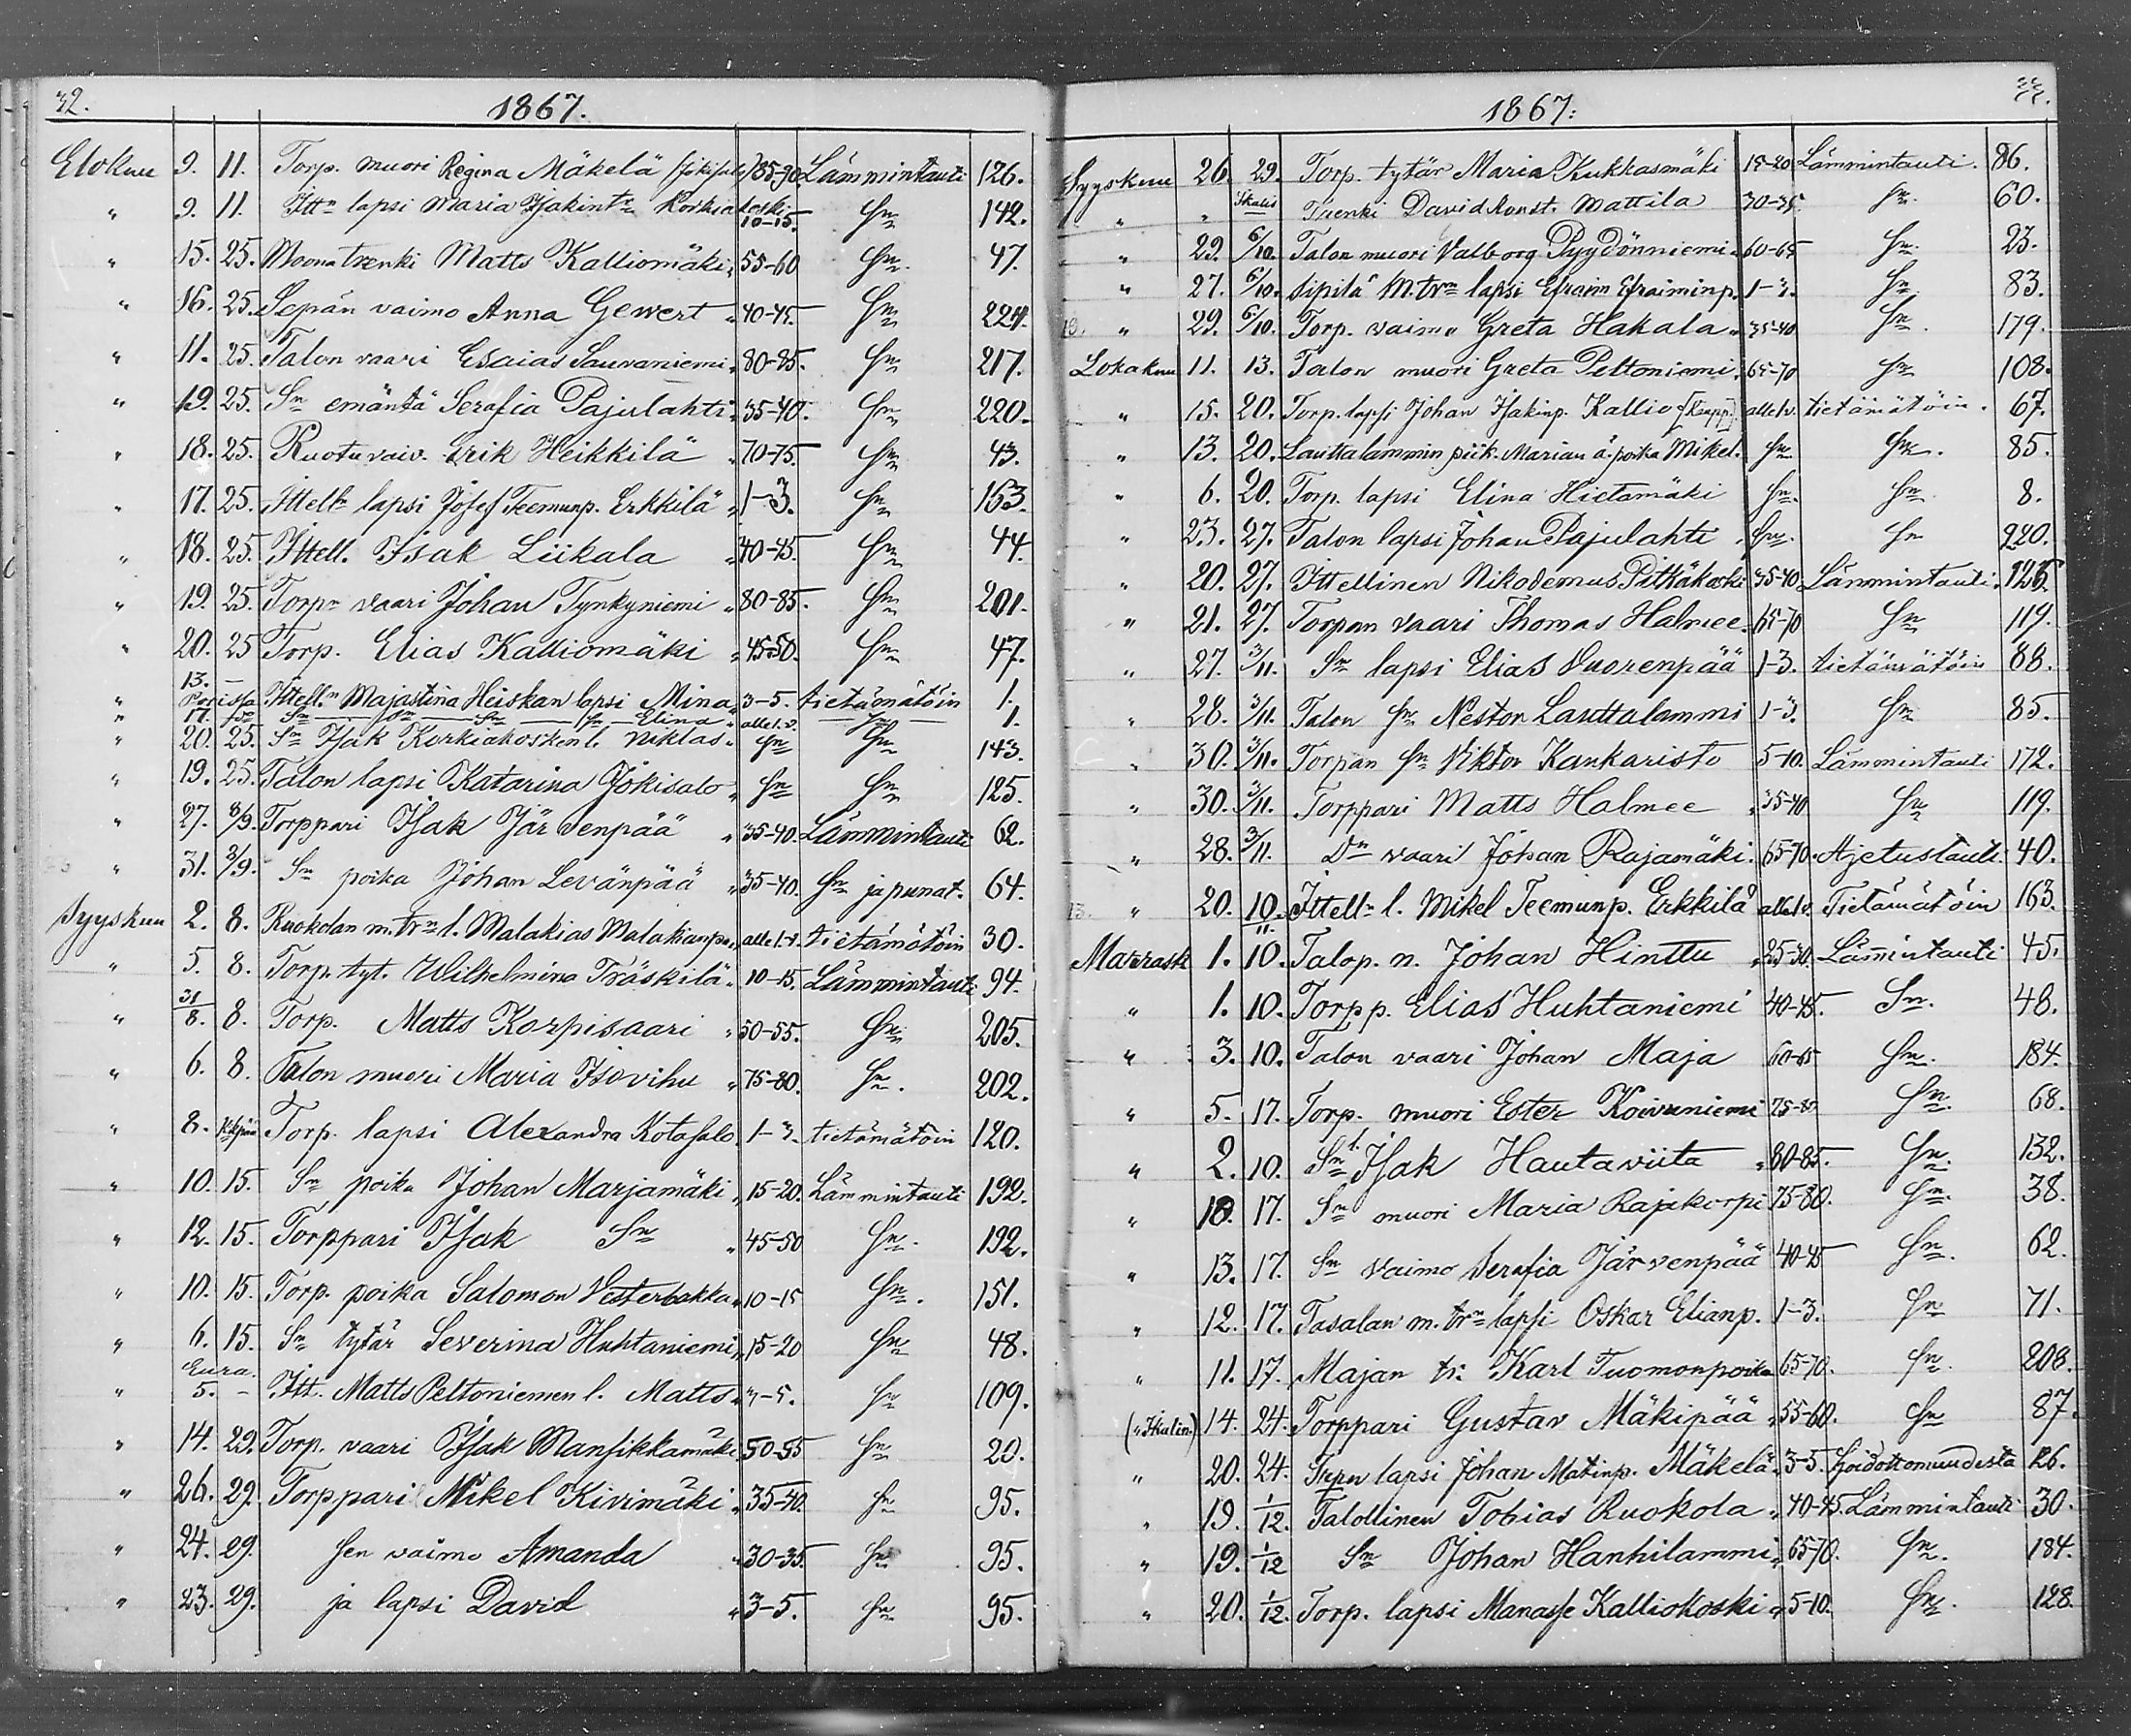 32.
1867.
Elokuu 9. 11. Torp. muori Regina Mäkelä (Jokisalo) 85-90 Lämmintauti 126.
" 9. 11. Ittn lapsi Maria Isakintr Korkiakoski 10-15. Sn 142.
" 15. 25. Moona trenki Matts Kalliomäki " 55-60 Sn 47.
" 16. 25. Sepän vaimo Anna Gewert " 40-45. Sn 224.
" 11. 25. Talon vaari Esaias Sauvaniemi " 80-85. Sn 217.
" 19. 25. Sn emäntä Serafia Pajulahti " 35-40. Sn 220.
" 18. 25. Ruotuvaiv. Erik Heikkilä " 70-75. Sn 43.
" 17. 25. Ittelln lapsi Josef Teemunp. Erkkilä " 1-3. Sn 163.
" 18. 25. Ittell. Isak Liikala " 40-45. Sn 44.
" 19. 25. Torpn vaari Johan Tynkyniemi " 80-85. Sn 201.
" 20. 25 Torp. Elias Kalliomäki " 45-50. Sn 47.
13. —
" Porissa Ittelln Majastina Heiskan lapsi Mina " 3-5. tietämätöin 1.
" 17. Sn Sn — Sn — Sn — Sn — Elina " alle 1. v. — Sn — 1.
" 20. 25. Sn Isak Korkiakosken l. Niklas " Sn Sn 143.
" 19. 25. Talon lapsi Katarina Jokisalo " Sn Sn 125.
" 27. 8/9. Torppari Isak Järvenpää " 35-40. Lämmintauti 62.
" 31. 3/9. Sn poika Johan Levänpää " 35-40. Sn ja punat. 64.
Syyskuu 2. 8. Ruokolan m. trn l. Malakias Malakianpn " alle 1. v. tietämätöin 30.
" 5. 8. Torp. tyt. Wilhelmina Träskilä " 10-15. Lämmintauti 94.
" 31/8. 8. Torp. Matts Korpisaari " 50-55. Sn 205.
" 6. 8. Talon muori Maria Isovihu " 75-80. Sn. 202.
" 8. Torp. lapsi Alexandra Kotasalo 1-3. tietämätöin 120.
" 10. 15. Sn poika Johan Marjamäki " 15-20. Lämmintauti 192.
" 12. 15. Torppari Isak Sn " 45-50 Sn. 192.
" 10. 15. Torp. poika Salomon Vesterbakka " 10-15 Sn. 151.
" 6. 15. Sn tytär Severina Huhtaniemi " 15-20 Sn 48.
Eura.
" 5. – Itt. Matts Peltoniemen l. Matts " 3-5. Sn 109.
" 14. 29. Torp. vaari Isak Mansikkamäki 50-55 Sn 20.
" 26. 29. Torppari Mikel Kivimäki " 35-40. Sn 95.
" 24. 29. Sen vaimo Amanda " 30-35. Sn 95.
" 23. 29. ja lapsi David " 3-5. Sn 95.
33.
1867.
Syyskuu 26. 29. Torp. tytär Maria Kukkasmäki 15-20 Lämmintauti. 86.
" " Ikalis Trenki David Konst. Mattila 30-35. Sn. 60.
" 29. 6/10. Talon muori Valborg Pyydönniemi " 60-65 Sn 23.
" 27. 6/10. Sipilä M. trn lapsi Efraim Efraiminp. 1-3. Sn 83.
" 29. 6/10. Torp. vaimo Greta Hakala " 35-40 Sn. 179.
Lokakuu 11. 13. Talon muori Greta Peltoniemi. 65-70 Sn 108.
" 15. 20. Torp. lapsi Johan Isakinp. Kallio [Kaupp.] alle 1. v. tietämätöin. 67.
" 13. 20. Lauttalammin piik. Marian ä. poika Mikel. Sn Sn. 85.
" 6. 20. Torp. lapsi Elina Hietamäki Sn. Sn 8.
" 23. 27. Talon lapsi Johan Pajulahti " Sn. Sn 220.
" 20. 27. Ittellinen Nikodemus Pitkäkoski 35-40 Lämmintauti. 126.
" 21. 27. Torpan vaari Thomas Halmee. 65-70 Sn 119.
" 27. 3/11. Sn lapsi Elias Vuorenpää 1-3. tietämätöin 88.
" 28. 3/11. Talon Sn Nestor Lauttalammi 1-3. Sn 85.
" 30. 3/11. Torpan Sn Viktor Kankaristo 5-10. Lämmintauti 172.
" 30. 3/11. Torppari Matts Halmee " 35-40 Sn 119.
" 28. 3/11. Dn vaari Johan Rajamäki. 65-70. Ajetustauti 40.
" 20. 10/11. Ittelln l. Mikel Teemunp. Erkkilä alle 1 v. Tietämätöin 163.
Marrask 1. 10. Talop. n. Johan Hinttu " 25-30. Lämmintauti 45.
" 1. 10. Torpp. Elias Huhtaniemi 40-45. Sn. 48.
" 3. 10. Talon vaari Johan Maja 60-65 Sn. 184.
" 5. 17. Torp. muori Ester Koivuniemi 75-80 Sn. 68.
" 2. 10. Sn l. Isak Hautaviita " 80-85. Sn. 132.
" 18. 17. Sn muori Maria Rajakorpi 75-80. Sn. 38.
" 13. 17. Sn vaimo Serafia Järvenpää 40-45 Sn. 62.
" 12. 17. Tasalan m. trn lapsi Oskar Elianp. 1-3. Sn 71.
" 11. 17. Majan tr. Karl Tuomonpoika 65-70. Sn. 208.
("Ikalin.) 14. 24. Torppari Gustav Mäkipää " 55-60. Sn 87.
" 20. 24. lapsi Johan Matinp. Mäkelä. 3-5. hoidottomuudesta 126.
" 19. 1/12. Talollinen Tobias Ruokola " 40-45. Lämmintauti 30.
" 19. 1/12 Sn Johan Hanhilammi " 65-70. Sn. 184.
" 20. 1/12. Torp. lapsi Manasse Kalliokoski " 5-10. Sn. 128.